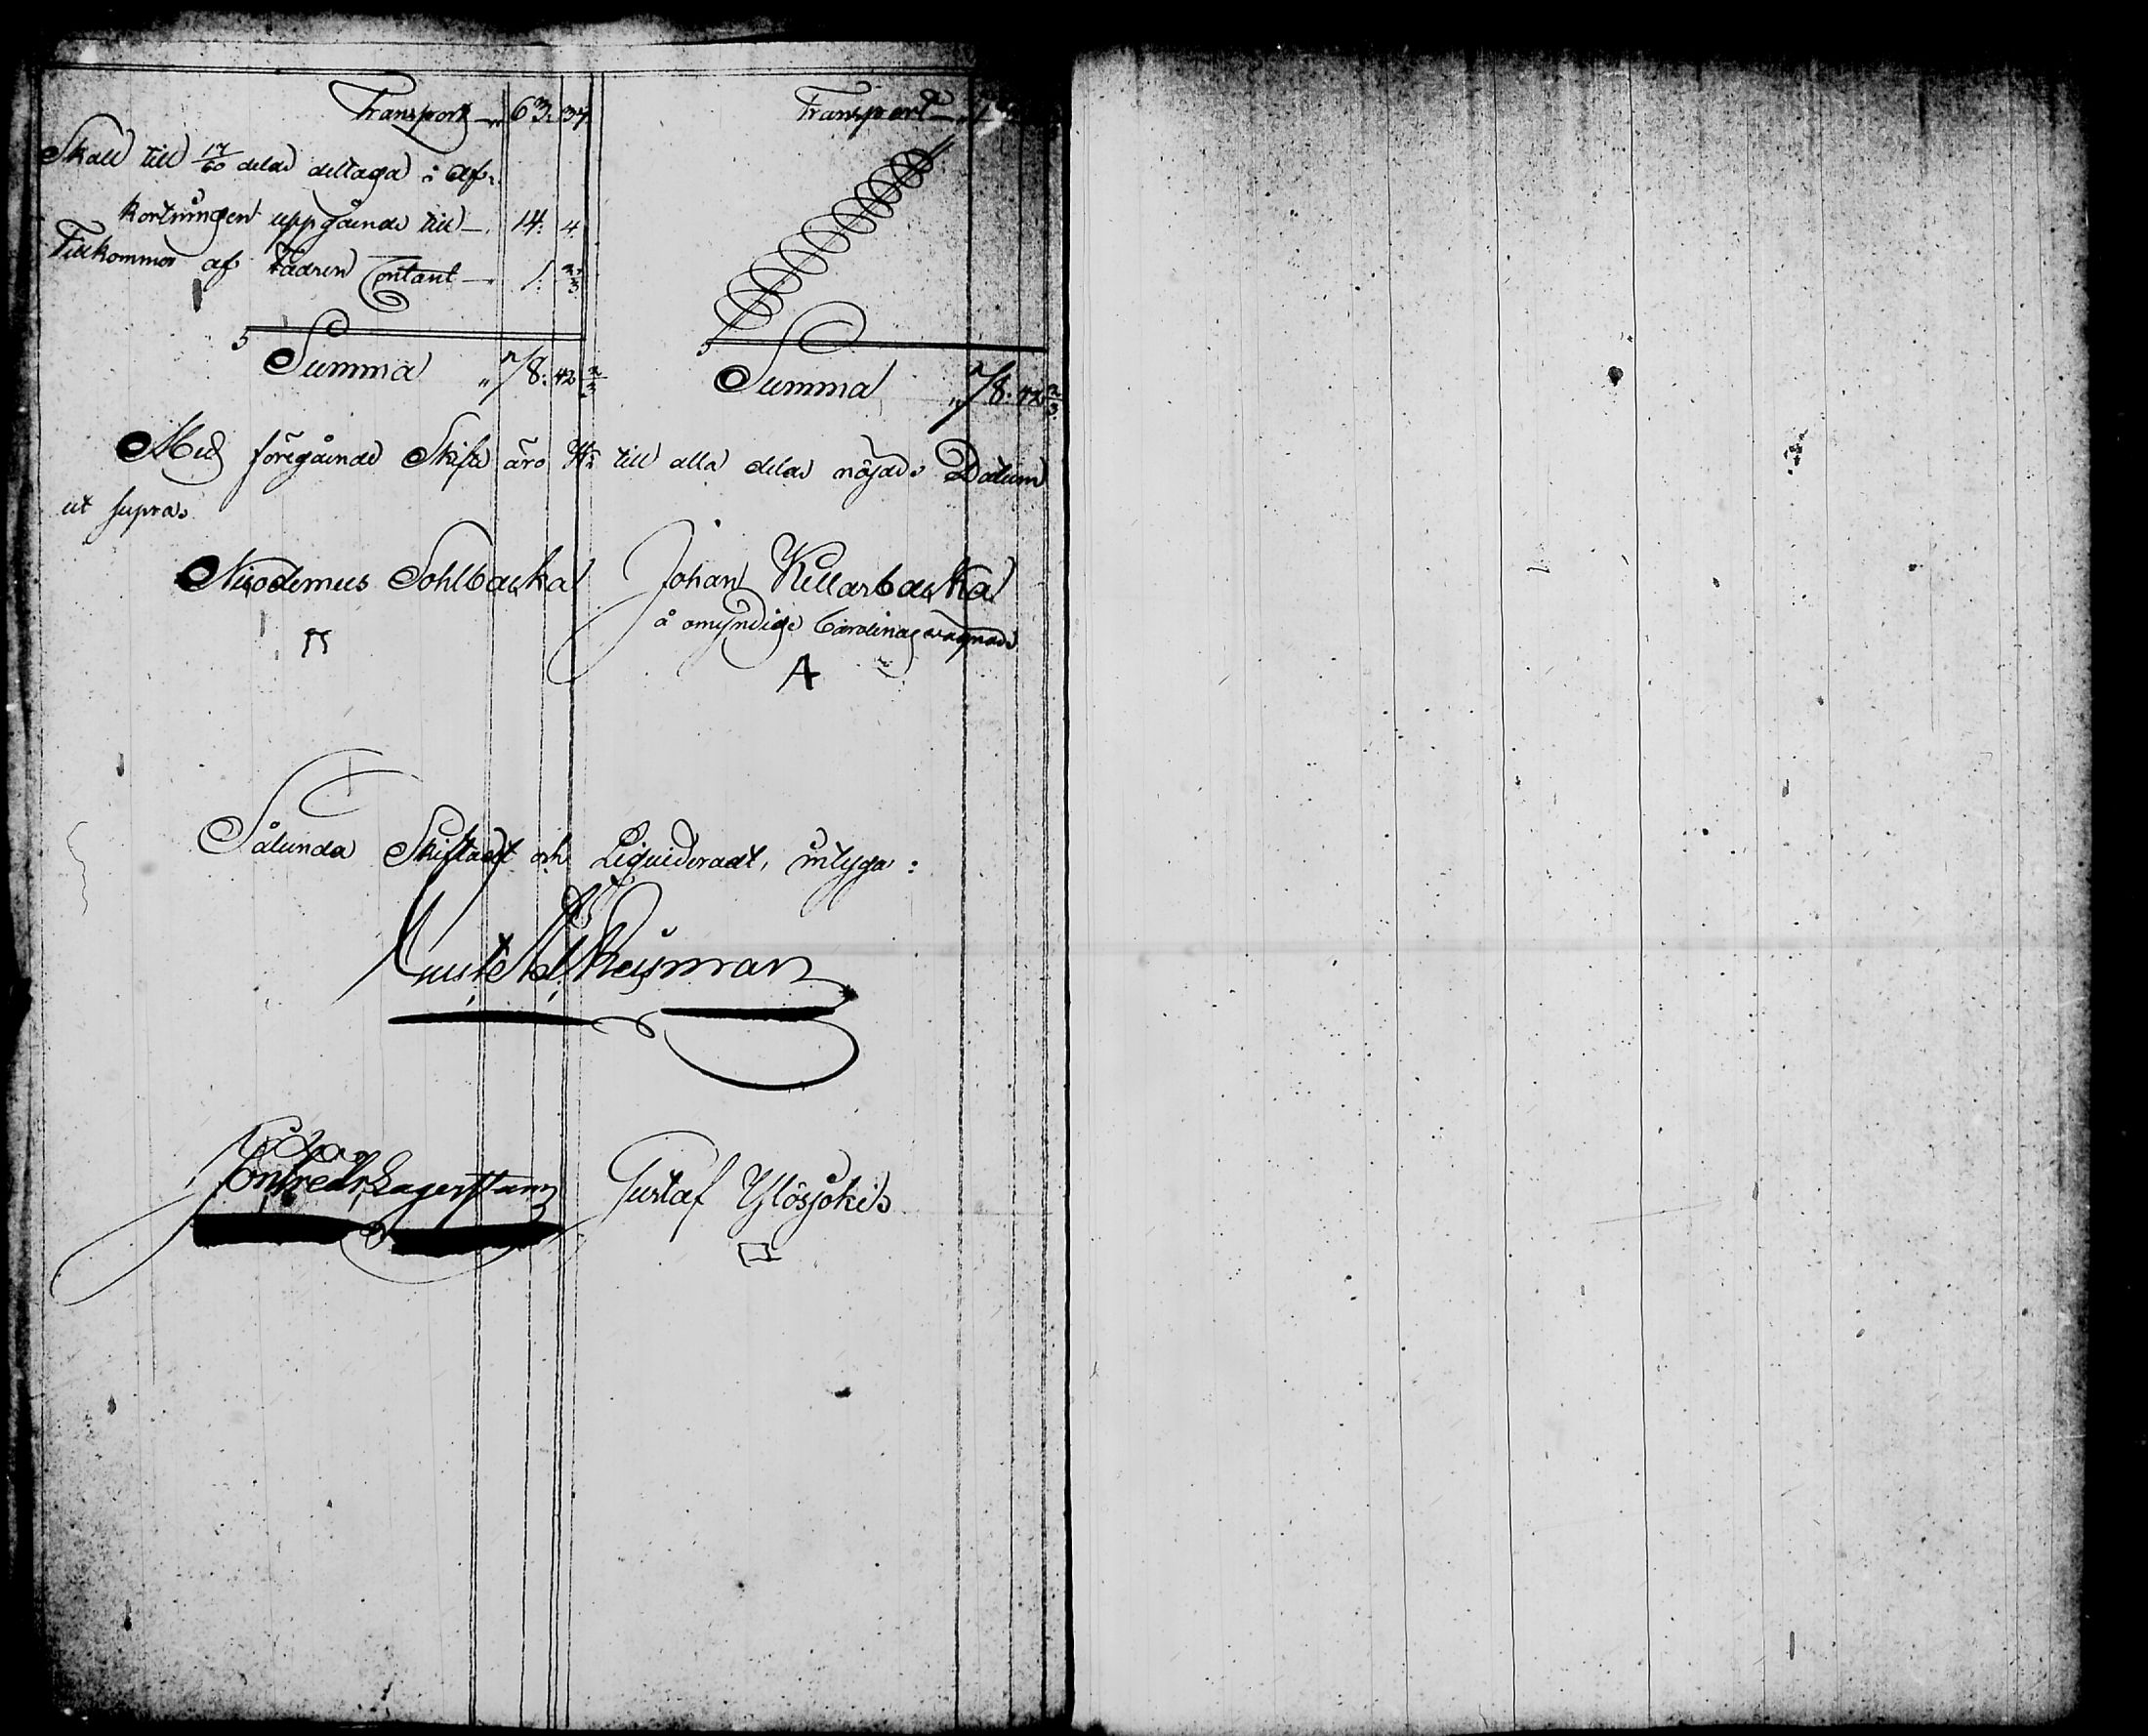 Transport 63. 34
Skall till 17/60 delar deltaga i Af-
kortningen uppgående till 14. 4.
Tillkommer af Fadren Contant 1. 4 2/3
Summa 78. 42 2/3
Transport
Summa 78. 42 2/3
Med föregående Skifte äro Wi till alla delar nöjde. Datum
ut supra.
Nicodemus Sohlbacka
Johan Kellarbacka
å omyndige Carolinas vagnar
A
Sålunda Skiftadt och Liquideradt, intyga:
Gust. Ad. Reisman
Johan Fredr. Lagerstam
Gustaf Ylösjokis